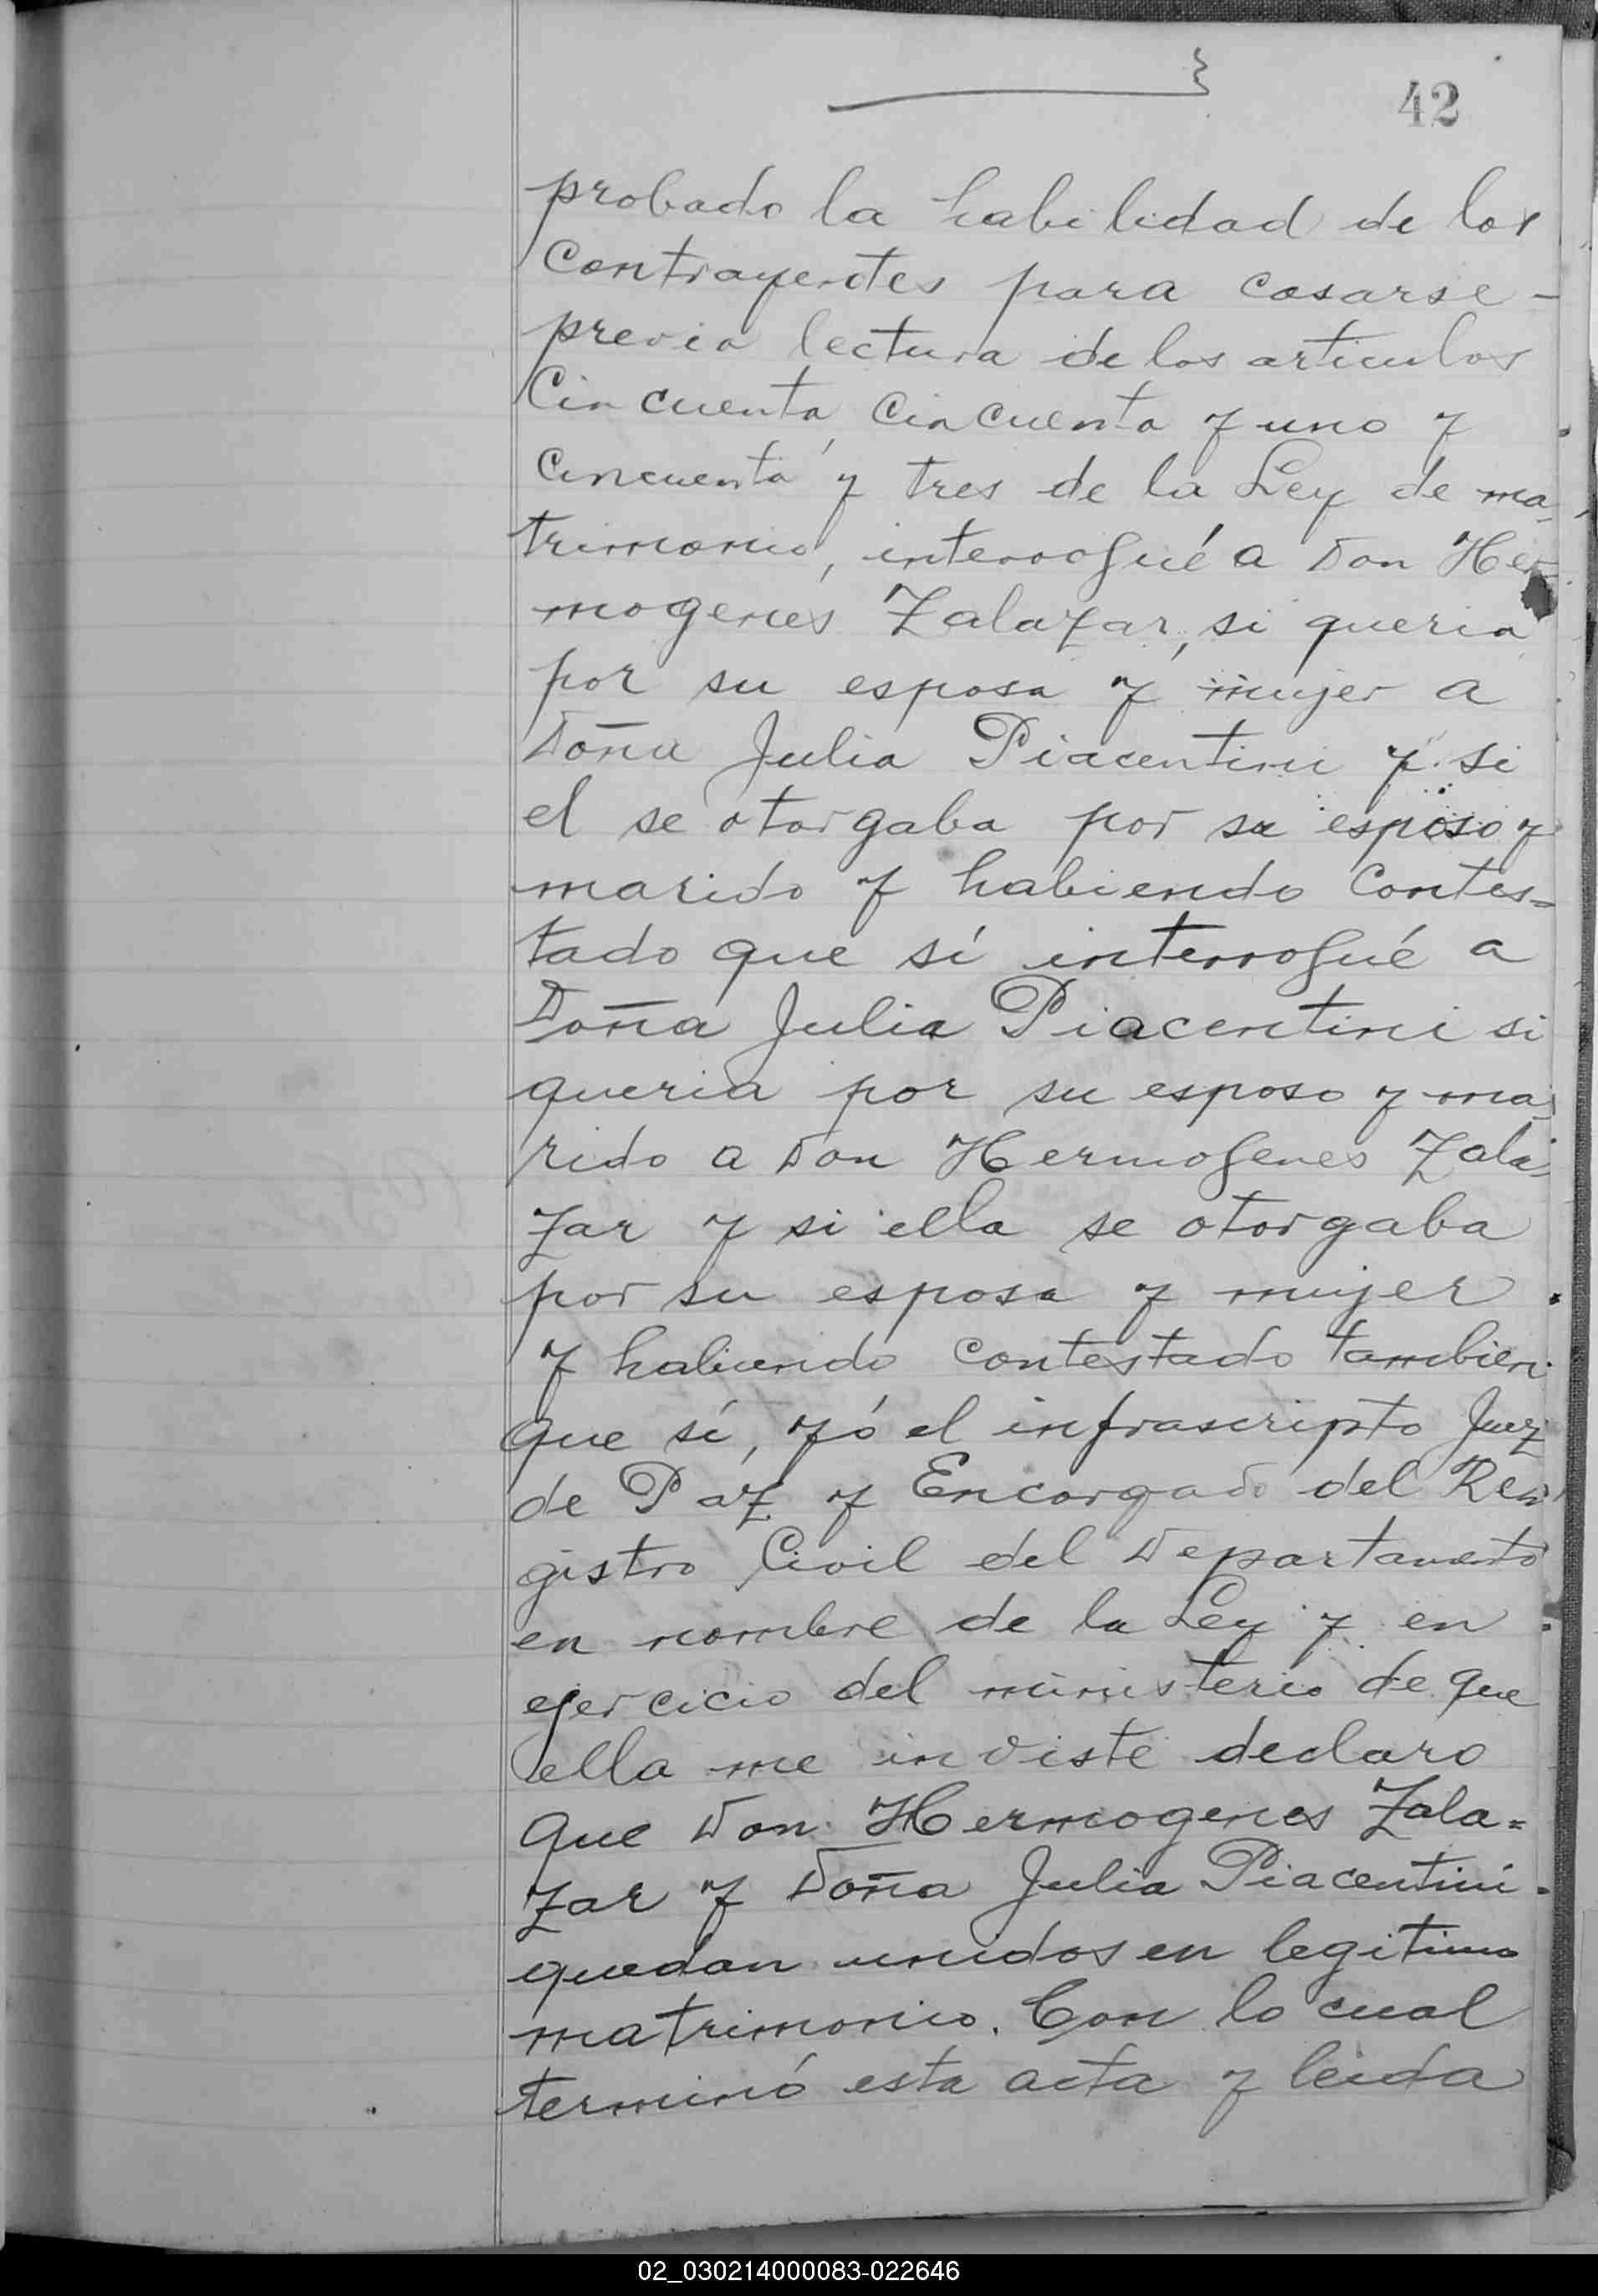 42
probado la habilidad de los
contrayentes para casarse -
previa lectura de los articulos
Cincuenta, cincuenta y uno y
cincuenta y tres de la Ley de ma
trimonio, interrogué a Don Her
mogenes Zalazar, si queria
por su esposa y mujer a
Doña Julia Piacentini y si
el se otorgaba por su esposo y
marido y habiendo contes=
tado que sí interrogué a
Doña Julia Piacentini si
queria por su esposo y ma
rido a Don Hermogenes Zala
zar y si ella se otorgaba
por su esposa y mujer
y habiendo contestado tambien
que sí, yó el infrascripto Juez
de Paz y Encargado del Re=
gistro Civil del Departamento
en nombre de la Ley y en
ejercicio del ministerio de que
ella me inviste declaro
que Don Hermogenes Zala=
zar y Doña Julia Piacentini
quedan unidos en legitimo
matrimonio. Con lo cual
terminó esta acta y leida
02_030214000083-022646